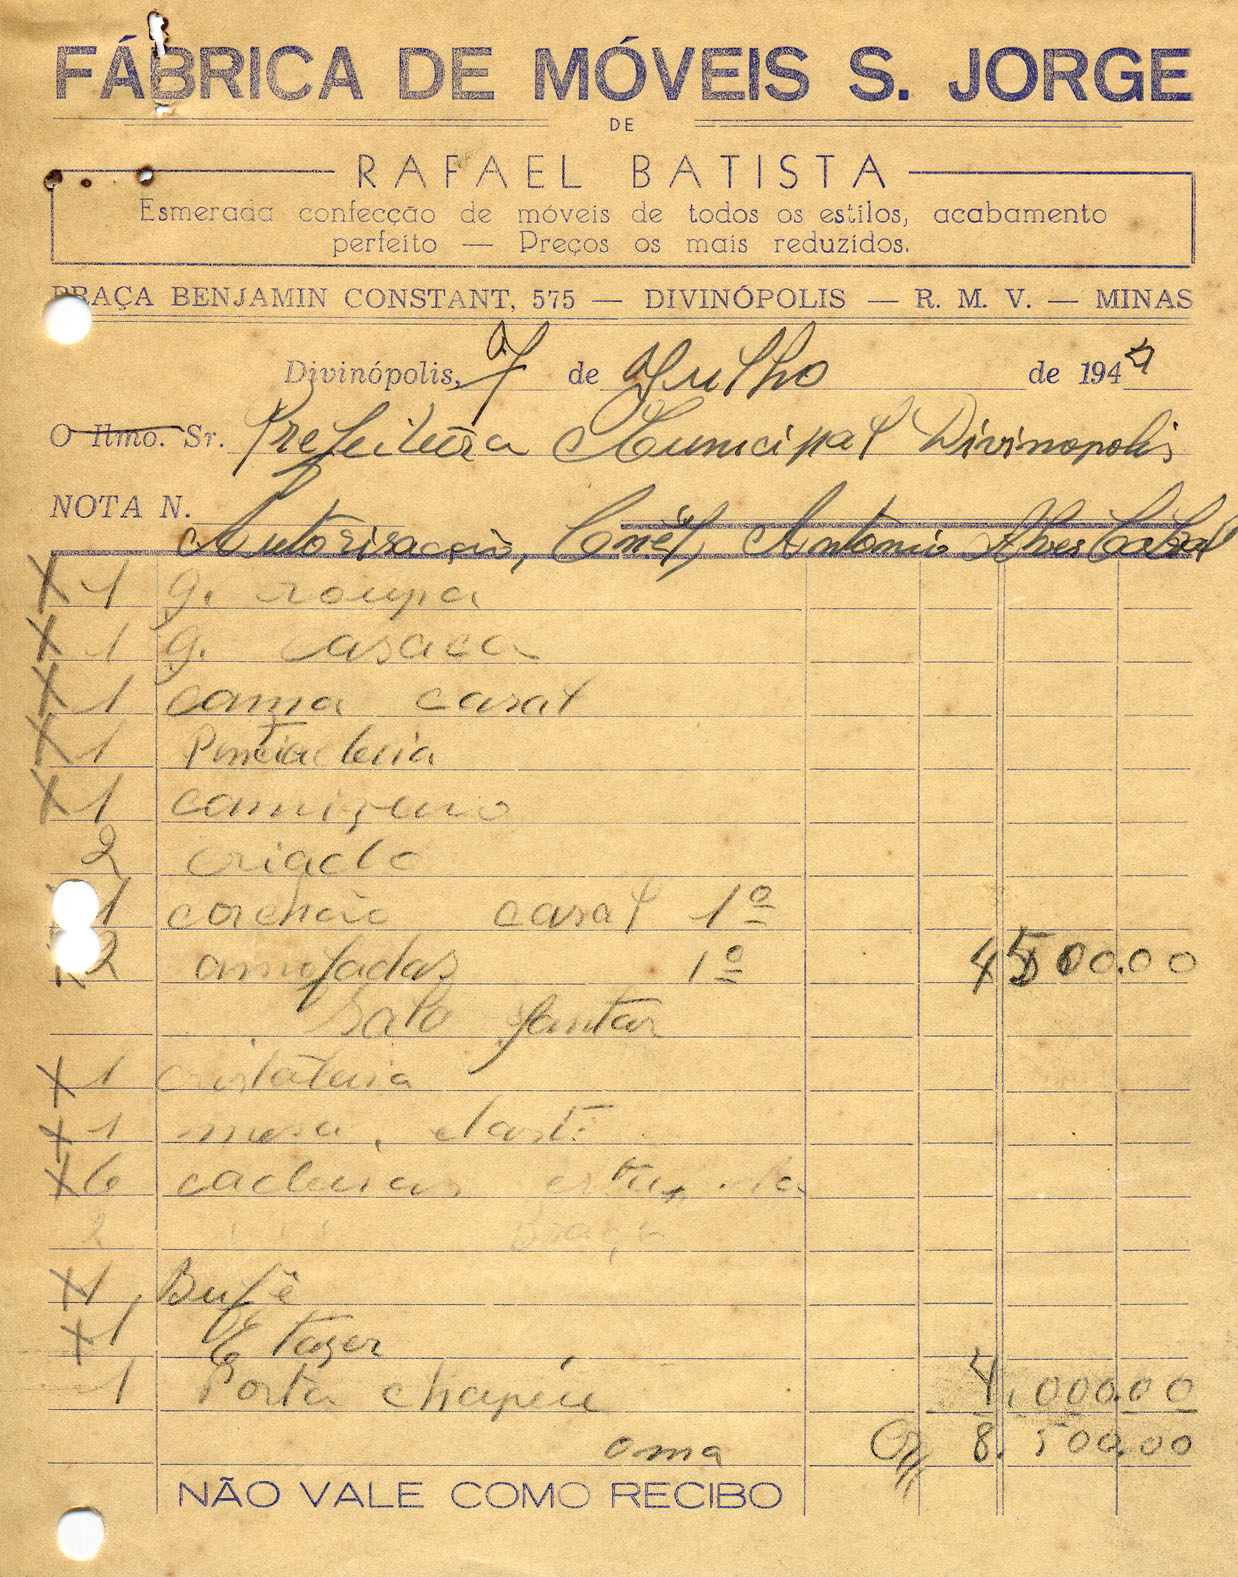 FÁBRICA DE MÓVEIS S. JORGE
DE
RAFAEL BATISTA
Esmerada confecção de móveis de todos os estilos, acabamento
perfeito — Preços os mais reduzidos.
PRAÇA BENJAMIN CONSTANT, 575 — DIVINÓPOLIS — R. M. V. — MINAS
Divinópolis, 7 de Julho de 194
O Ilmo. Sr. Prefeitura Municipal Divinopolis
NOTA N.
Autorisação, Antonio Alves
X 1 g. roupa
X 1 g. casaca
X 1 cama casal
X 1 Penteadeira
X 1 camizeiro
2 criado
1 colchão casal 1ª
X 2 almofadas 1ª 4 500.00
Sala Jantar
X 1 cristaleira
X 1 mesa, elast.
X 6 cadeiras
2 Braço
X 1 Bufê
X 1 Etager
1 Porta chapéu 4.000.00
oma Cr 8.500.00
NÃO VALE COMO RECIBO